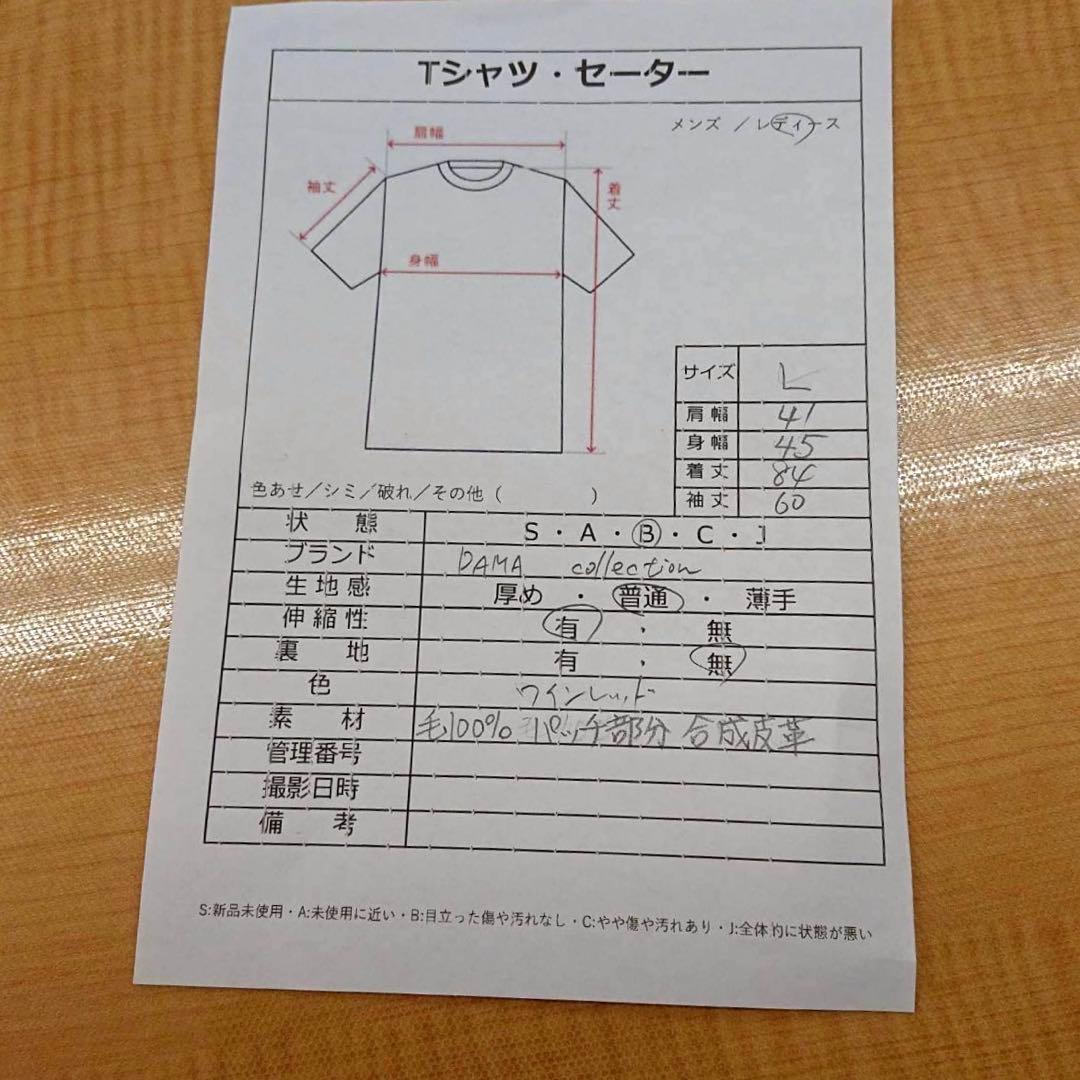 Tシャツ・セーター
メンズ /レディース
肩幅
袖丈
着丈
身幅
サイズ L
肩幅 41
身幅 45
着丈 84
袖丈 60
色あせ/シミ/破れ/その他 ( )
状 態 S・A・B・C・J
ブランド DAMA collection
生地感 厚め ・ 普通 ・ 薄手
伸縮性 有 ・ 無
裏 地 有 ・ 無
色 ワインレッド
素 材 毛100% パッチ部分 合成皮革
管理番号
撮影日時
備 考
S:新品未使用・A:未使用に近い・B:目立った傷や汚れなし・C:やや傷や汚れあり・J:全体的に状態が悪い